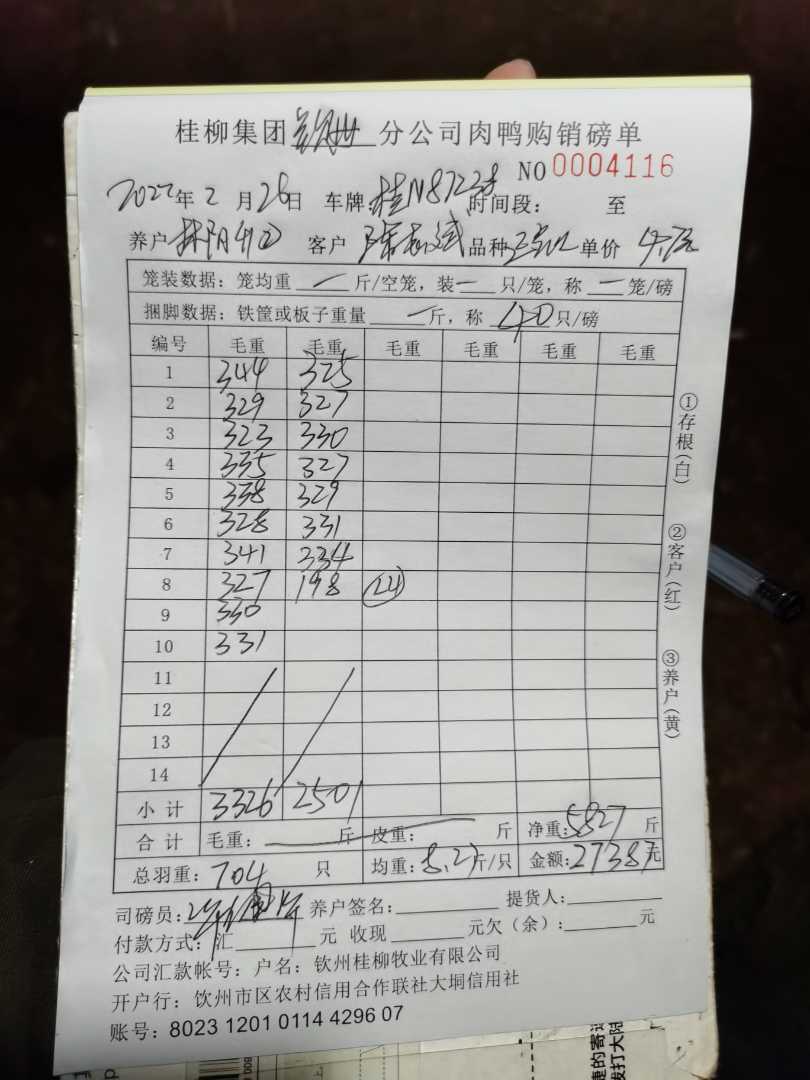 桂柳集团钦州分公司肉鸭购销磅单
NO 0004116
2022年2月26日 车牌:桂N8723 时间段: 至
养户 客户 品种 单价
笼装数据: 笼均重 一 斤/空笼, 装 一 只/笼, 称 一 笼/磅
捆脚数据: 铁筐或板子重量 一 斤, 称 40 只/磅
编号 毛重 毛重 毛重 毛重 毛重 毛重
1 344 325
2 329 327
3 323 330
4 335 327
5 338 329
6 328 331
7 341 334
8 327 198 24
9 330
10 331
11
12
13
14
小计 3326 2501
合计 毛重: 斤 皮重: 斤 净重:5827 斤
总羽重: 704 只 均重: 8.27斤/只 金额:27387元
司磅员: 养户签名: 提货人:
付款方式: 汇 元 收现 元欠(余): 元
公司汇款帐号: 户名: 钦州桂柳牧业有限公司
开户行: 钦州市区农村信用合作联社大垌信用社
账号: 8023 1201 0114 4296 07
①存根(白)
②客户(红)
③养户(黄)